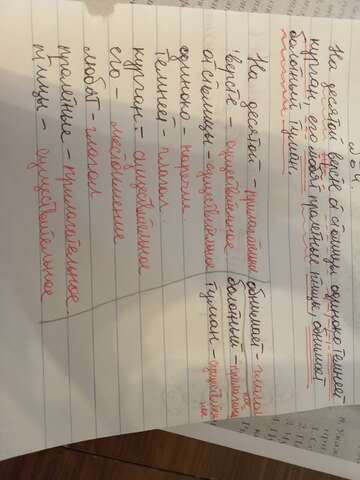 На десятой версте от столицы одиноко темнеет
курган, его любят пролётные птицы, обнимает
болотный туман.
На десятой - прилагательное
версте - существительное
от столицы - существительное
одиноко - наречие.
темнеет - глагол.
курган - существительное
его - местоимение
любят - глагол
пролётные - прилагательное.
птицы - существительное
обнимает - глагол
болотный - прилагатель
ное
туман - существитель
ное